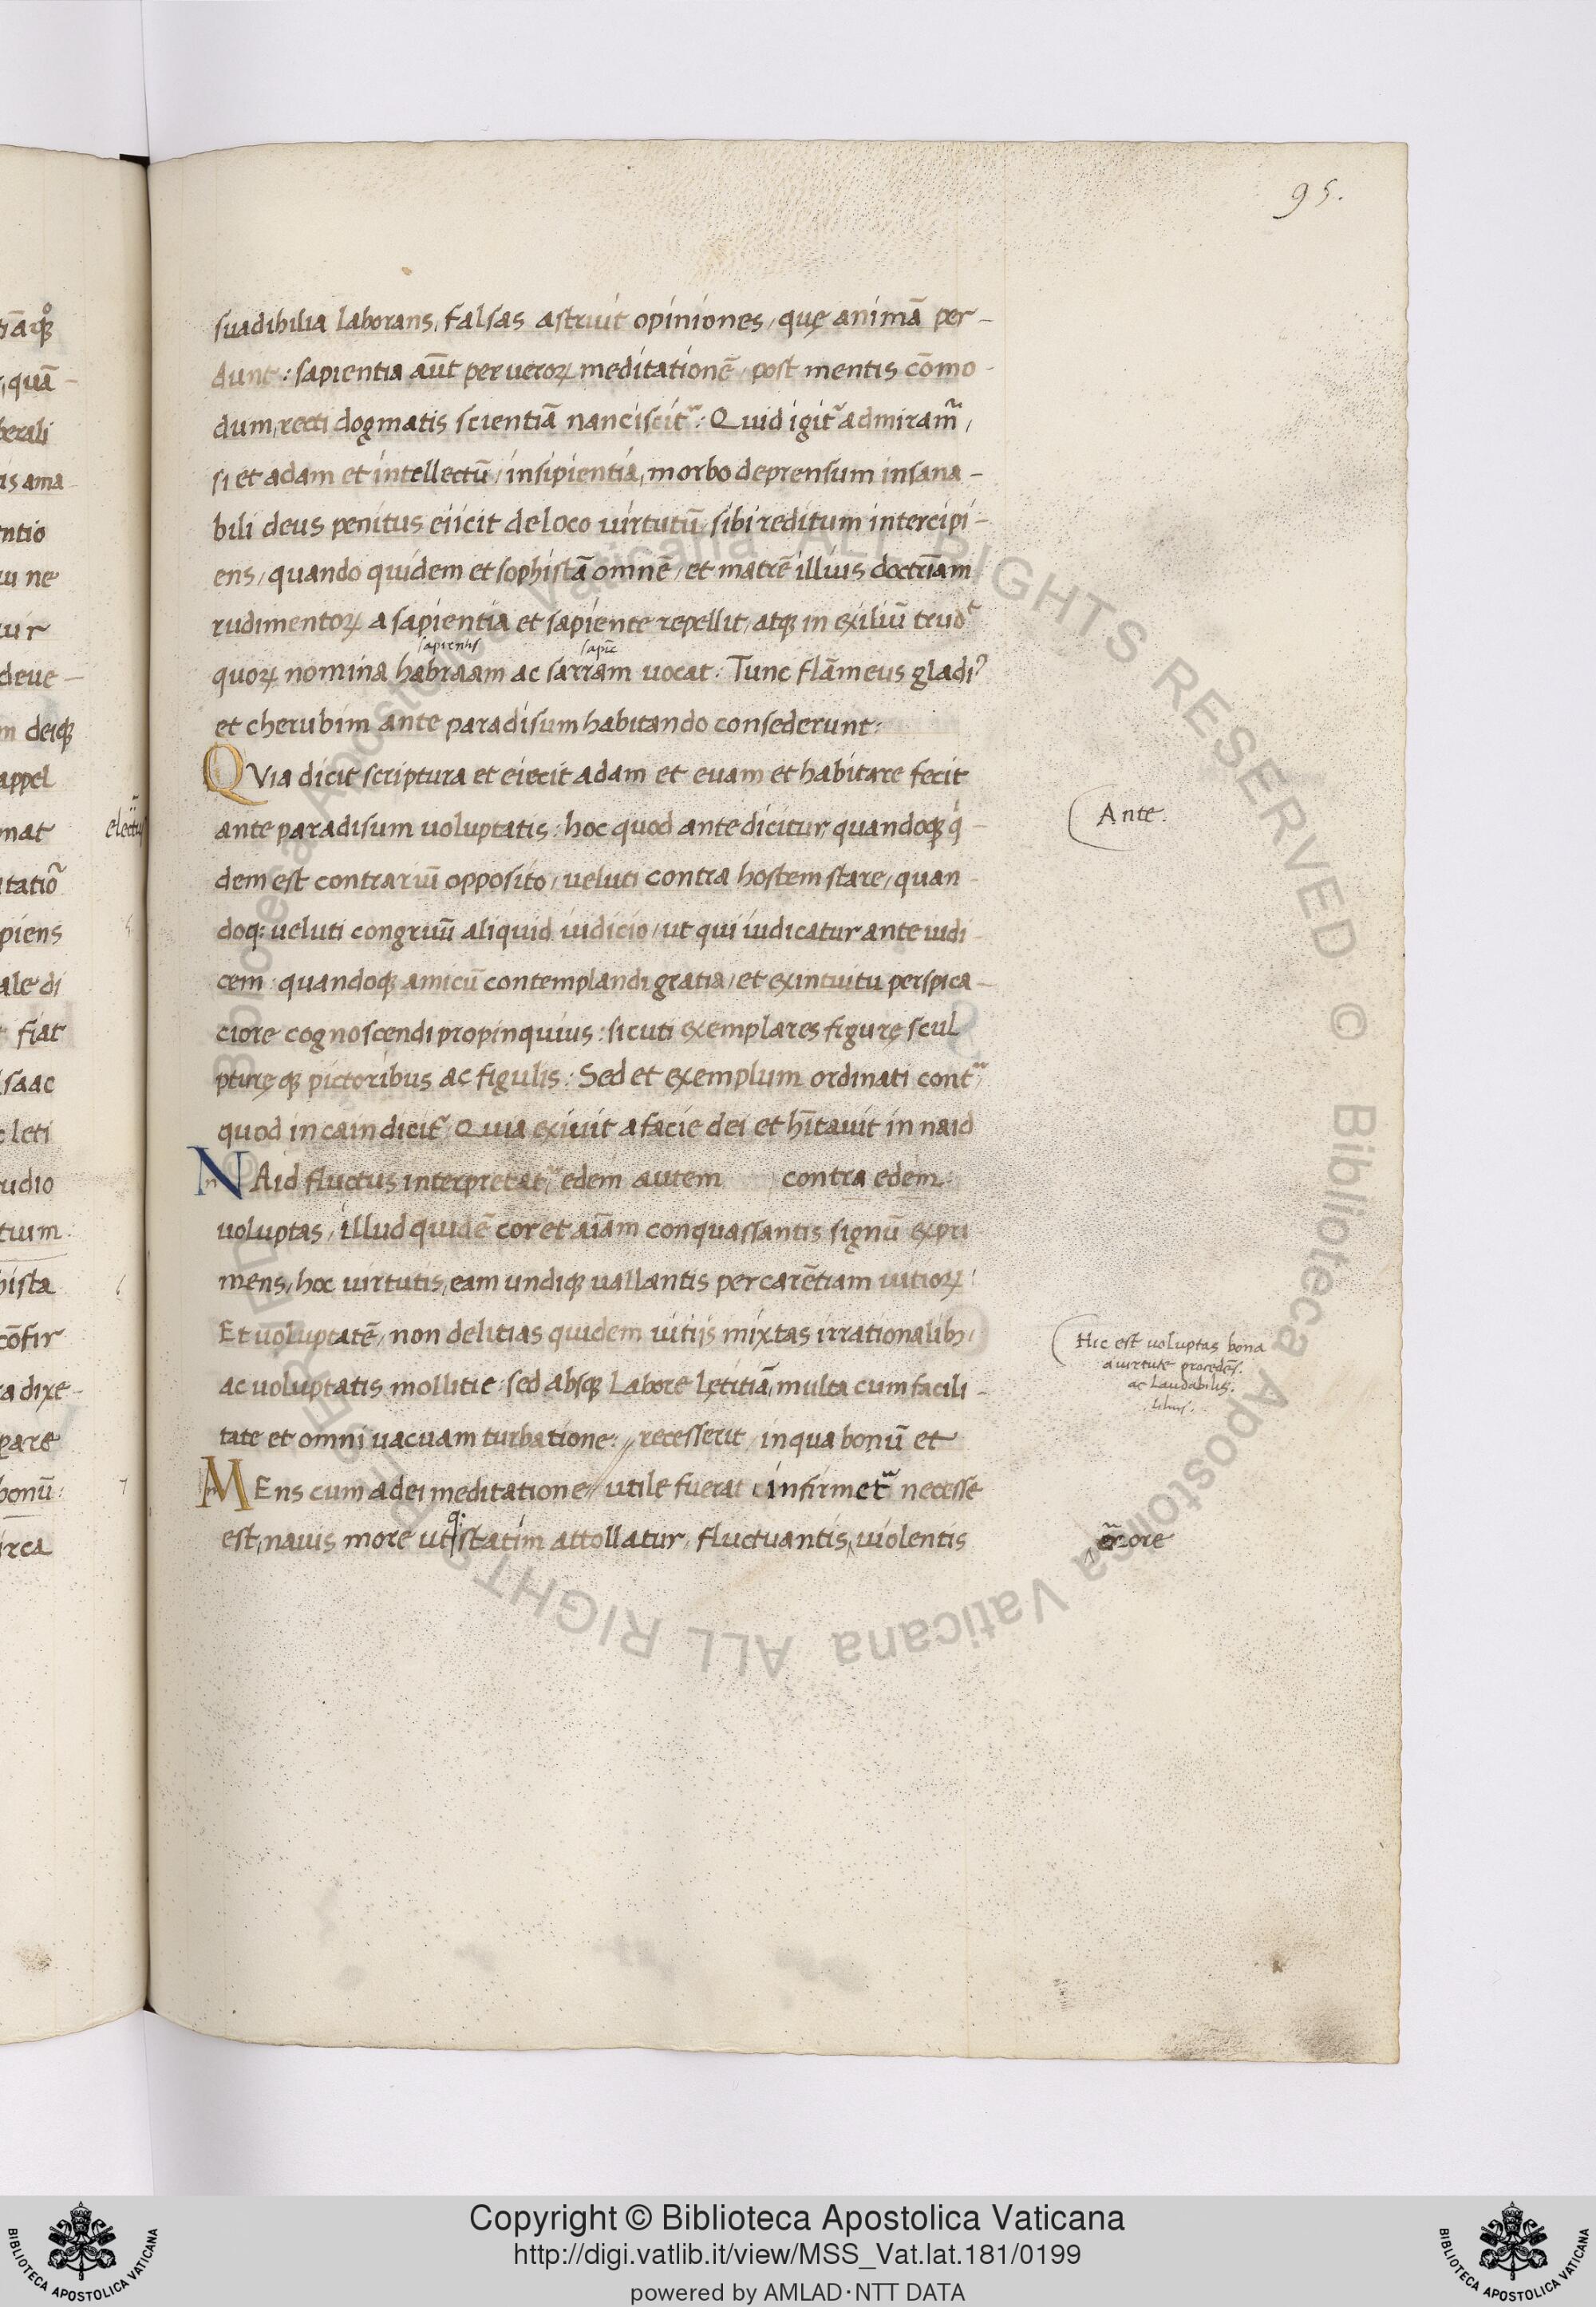 95.
suadibilia laborans, falsas astruit opiniones, quę animā per-
dunt: sapientia aūt per ueroꝝ meditationē, post mentis cōmo-
dum, recti dogmatis scientiā nanciscit᷑: Quid igit᷑ admiram᷑,
si et adam et intellectū, insipientia, morbo deprensum insana-
bili deus penitus eiicit de loco uirtutū, sibi reditum intercipi-
ens, quando quidem et sophistā omnē, et matrē illius doctrīam
rudimentoꝝ a sapientia et sapiente repellit, atqꝫ in exiliū trudᵗ
sapientis sapīe
quoꝝ nomina habraam ac sarram uocat: Tunc flāmeus gladiꝰ
et cherubim ante paradisum habitando consederunt:
QVia dicit scriptura et eiecit adam et euam et habitare fecit
ante paradisum uoluptatis: hoc quod ante dicitur, quandoqꝫ qⁱ-
Ante.
dem est contrariū opposito, ueluti contra hostem stare, quan-
doq: ueluti congruū aliquid iudicio, ut qui iudicatur ante iudi-
cem: quandoqꝫ amicū contemplandi gratia, et ex intuitu perspica-
ciore cognoscendi propinquius: sicuti exemplares figurę scul
pturę qꝫ pictoribus ac figulis: Sed et exemplum ordinati cont᷑,
quod in cain dicit᷑, Quia exiuit a facie dei et hītauit in naid
NAid fluctus interpretat᷑, edem autem contra edem.
uoluptas, illud quidē cor et aīam conquassantis signū expri
mens, hoc uirtutis, eam undiqꝫ uallantis per carētiam uitioꝝ:
Et uoluptatē, non delitias quidem uitijs mixtas irrationalibꝫ,
Hic est uoluptas bona
a uirtute procedēs.
ac laudabilis.
ac uoluptatis mollitie: sed absqꝫ labore lętitiā, multa cum facili-
tate et omni uacuam turbatione: // recesserit, in qua bonū et
MEns cum a dei meditatione // utile fuerat infirmet᷑ necesse
est, nauis more ut q: statim attollatur, fluctuantis, uiolentis
Copyright © Biblioteca Apostolica Vaticana
http://digi.vatlib.it/view/MSS_Vat.lat.181/0199
powered by AMLAD·NTT DATA
BIBLIOTECA APOSTOLICA VATICANA
BIBLIOTECA APOSTOLICA VATICANA